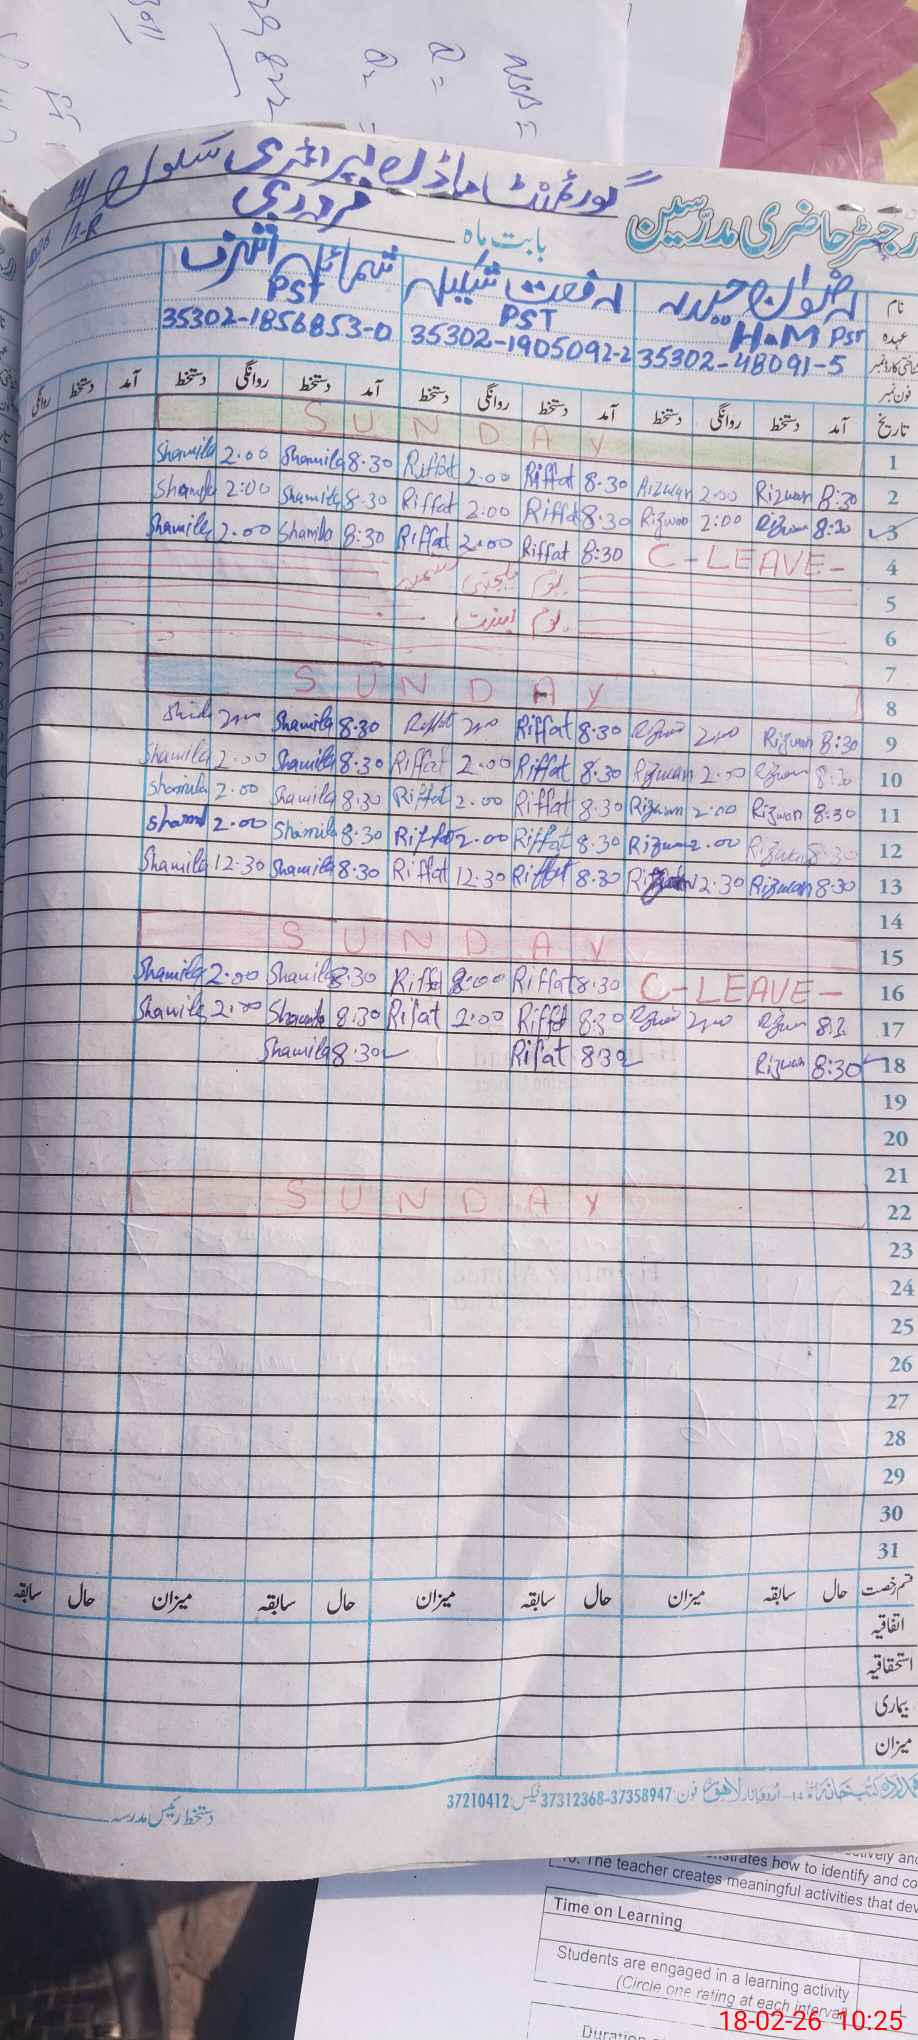 گورنمنٹ ماڈل پرائمری سکول
11/1-R
رجسٹر حاضری مدرسین
بابت ماہ فروری
نام رضوان حیدر رفعت شکیلہ شمائلہ اشرف
عہدہ H.M PST PST PST
شناختی کارڈ نمبر 35302-48091-5 35302-1905092-2 35302-1856853-0
فون نمبر
تاریخ آمد دستخط روانگی دستخط آمد دستخط روانگی دستخط آمد دستخط روانگی دستخط آمد دستخط روانگی
1 SUNDAY
2 8:30 Rizwan 2:00 Rizwan 8:30 Riffat 2.00 Riffat 8.30 Shamila 2.00 Shamila
3 8:30 Rizwan 2:00 Rizwan 8.30 Riffat 2:00 Riffat 8.30 Shamila 2:00 Shamila
4 C-LEAVE- 8:30 Riffat 2:00 Riffat 8:30 Shamila 2.00 Shamila
5 یوم یکجہتی کشمیر
6 یوم
7
8 SUNDAY
9 8:30 Rizwan 2:00 8.30 Riffat Riffat 8.30 Shamila
10 8:30 Rizwan 2:00 Rizwan 8.30 Riffat 2.00 Riffat 8.30 Shamila 2.00 Shamila
11 8:30 Rizwan 2:00 Rizwan 8.30 Riffat 2.00 Riffat 8.30 Shamila 2.00 Shamila
12 8:30 Rizwan 2.00 Rizwan 8.30 Riffat 2.00 Riffat 8.30 Shamila 2.00
13 8:30 Rizwan 12.30 8.30 Riffat 12.30 Riffat 8.30 Shamila 12.30 Shamila
14
15 SUNDAY
16 C-LEAVE- 8.30 Riffat 2:00 Riffat 8.30 Shamila 2.00 Shamila
17 8:30 8.30 Riffat 2:00 Rifat 8.30 Shamila 2.00 Shamila
18 8:30 Rizwan 8.30 Rifat 8.30 Shamila
19
20
21
22 SUNDAY
23
24
25
26
27
28
29
30
31
قسم رخصت حال سابقہ میزان حال سابقہ میزان حال سابقہ میزان حال سابقہ
اتفاقیہ
استحقاقیہ
بیماری
میزان
14-اردو بازار لاہور فون: 37358947-37312368 فیکس: 37210412
دستخط رئیس مدرسہ
how to identify and
10. The teacher creates meaningful activities that
Time on Learning
Students are engaged in a learning activity
(Circle one rating at each interval)
18-02-26 10:25